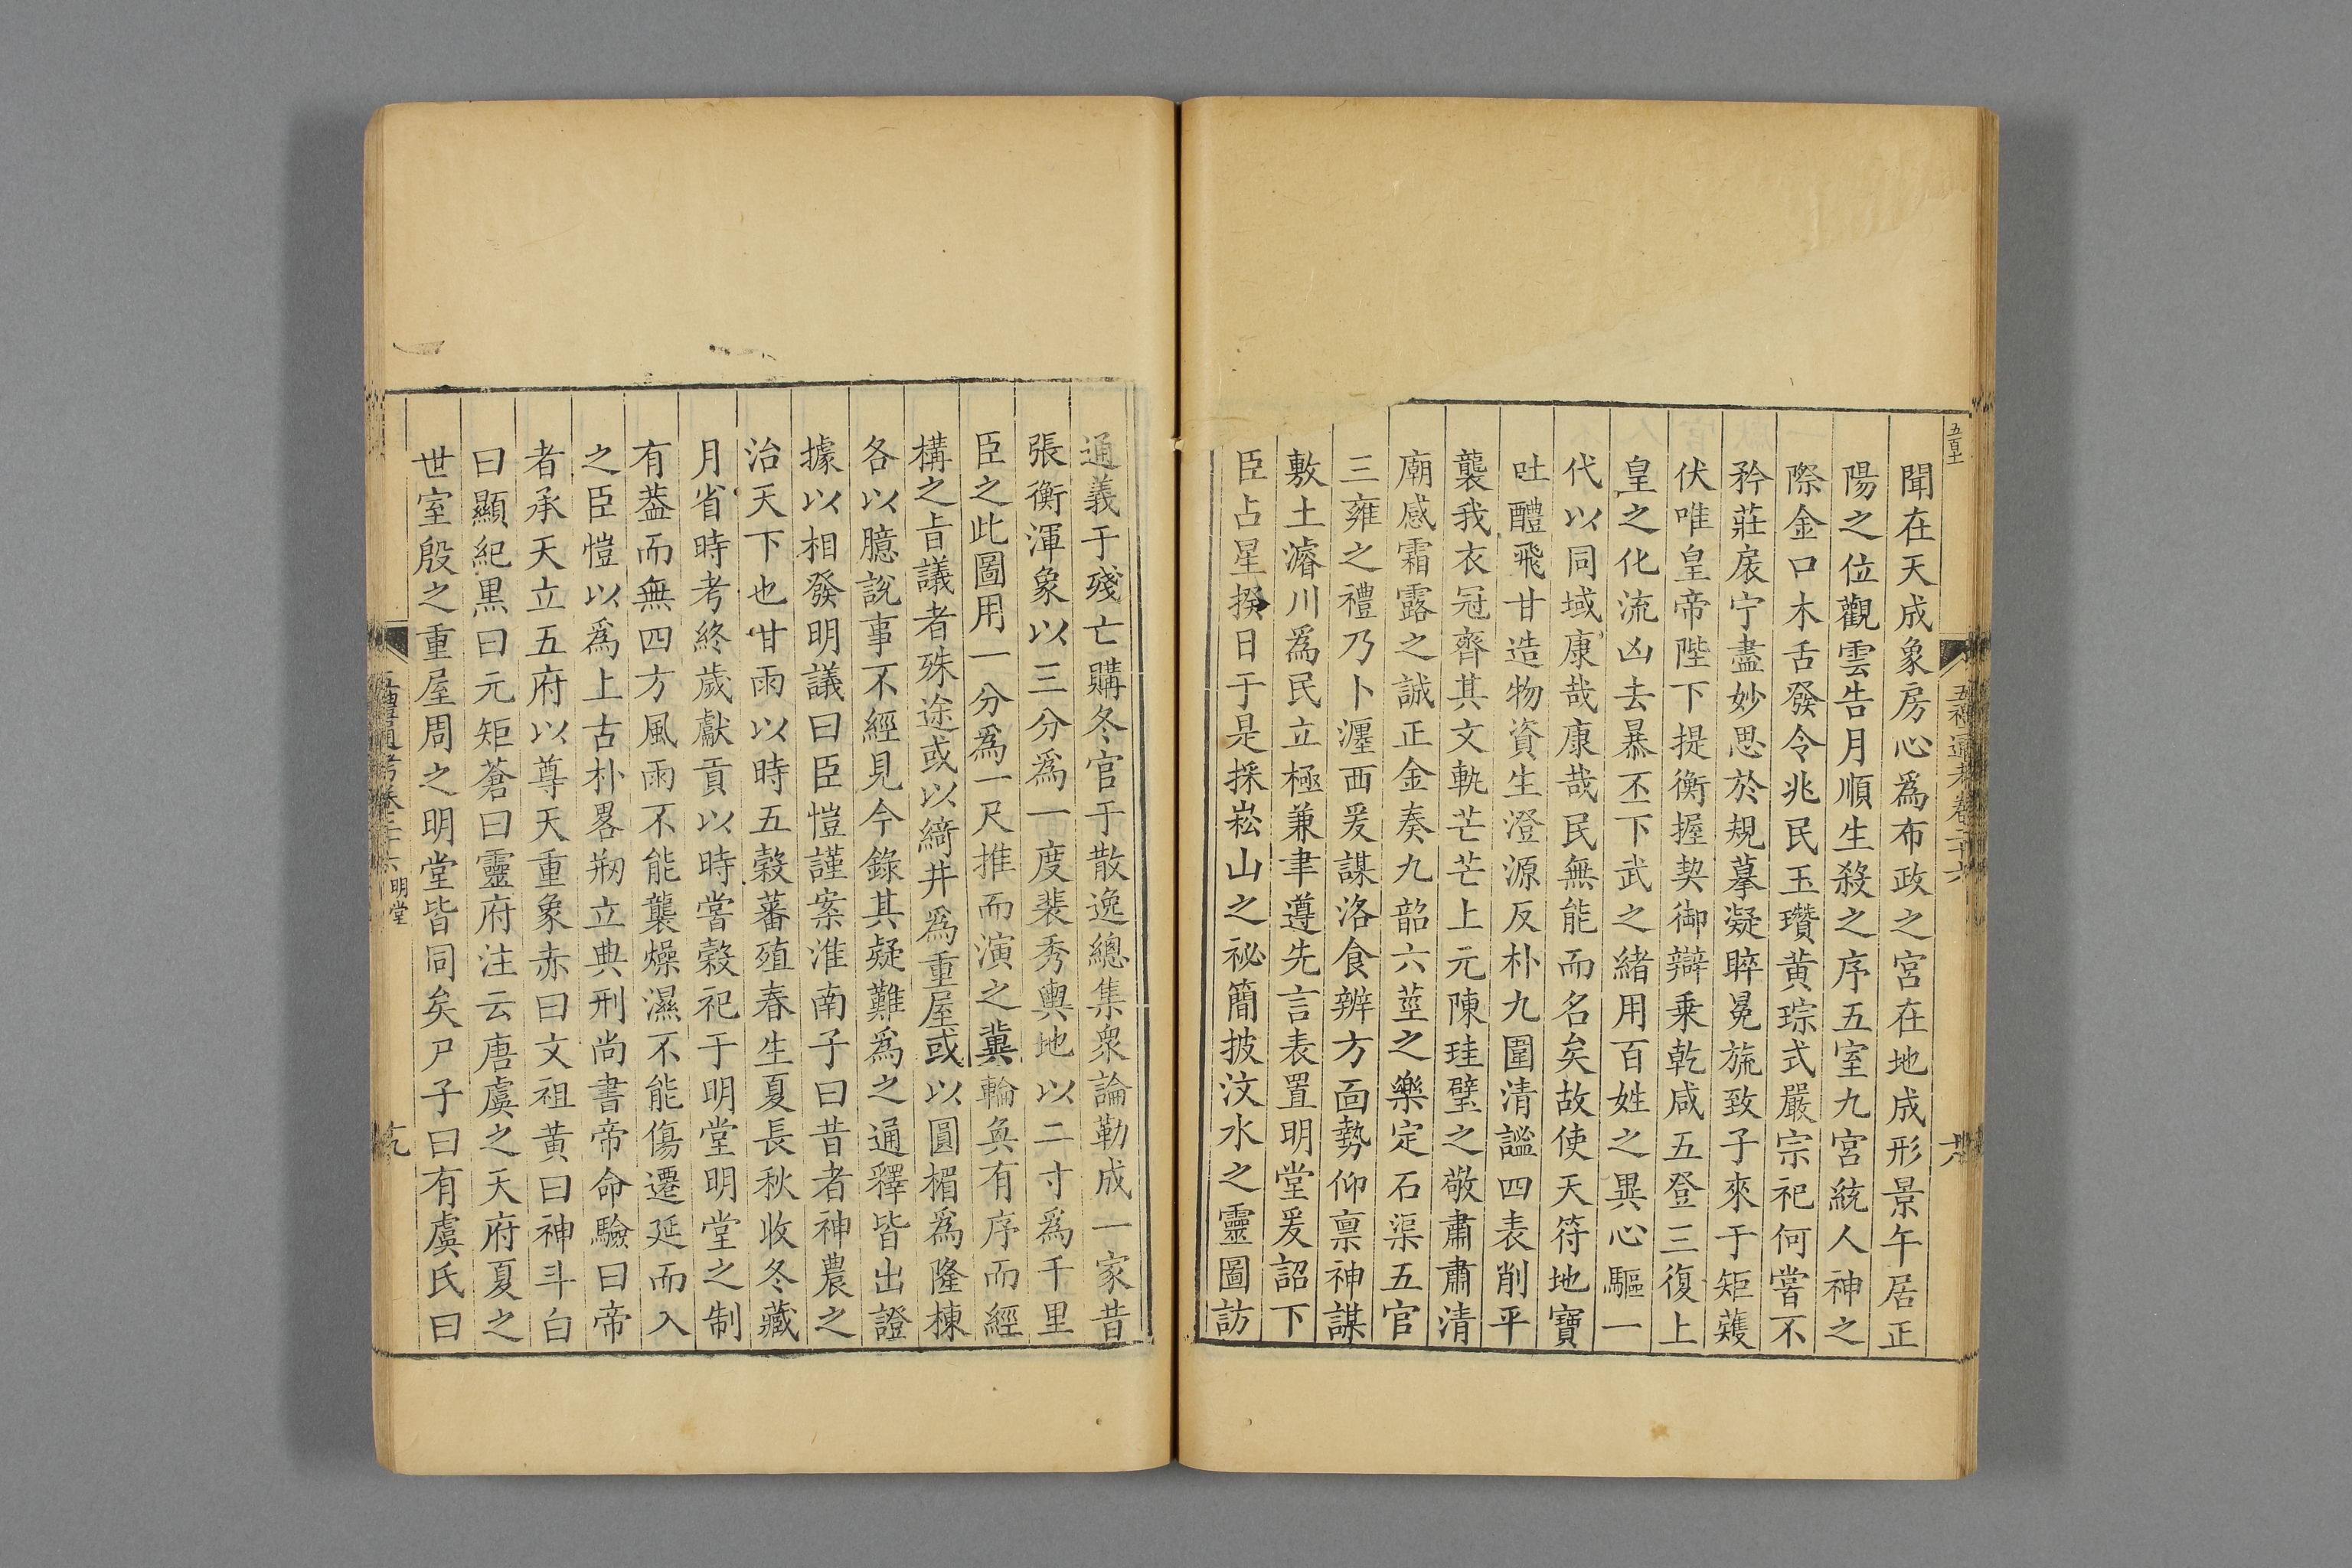 聞在天成象房心爲布政之宮在地成形景午居正
陽之位觀雲告月順生殺之序五室九宮統人神之
際金口木舌發令兆民玉瓚黃琮式嚴宗祀何嘗不
矜莊扆宁盡妙思於規摹凝睟冕旒致子來于矩矱
伏唯皇帝陛下提衡握契御辯乗乾咸五登三復上
皇之化流凶去暴丕下武之緒用百姓之異心驅一
代以同域康哉康哉民無能而名矣故使天符地寶
吐醴飛甘造物資生澄源反朴九圍清謐四表削平
襲我衣冠齊其文軌芒芒上元陳珪璧之敬肅肅清
廟感霜露之誠正金奏九韶六莖之樂定石渠五官
三雍之禮乃卜瀍西爰謀洛食辨方面勢仰禀神謀
敷土濬川爲民立極兼聿遵先言表置明堂爰詔下
臣占星揆日于是採崧山之祕簡披汶水之靈圖訪
通義于殘亡購冬官于散逸總集衆論勒成一家昔
張衡渾象以三分爲一度裴秀輿地以二寸爲千里
臣之此圖用一分爲一尺推而演之冀輪奐有序而經
構之旨議者殊途或以綺井爲重屋或以圓楣爲隆棟
各以臆說事不經見今錄其疑難爲之通釋皆出證
據以相發明議曰臣愷謹案淮南子曰昔者神農之
治天下也甘雨以時五穀蕃殖春生夏長秋收冬藏
月省時考終歲獻貢以時嘗穀祀于明堂明堂之制
有葢而無四方風雨不能襲燥濕不能傷遷延而入
之臣愷以爲上古朴畧剏立典刑尚書帝命驗曰帝
者承天立五府以尊天重象赤曰文祖黃曰神斗白
曰顯紀黑曰元矩蒼曰靈府注云唐虞之天府夏之
世室殷之重屋周之明堂皆同矣尸子曰有虞氏曰
五禮通考卷二十六 明堂